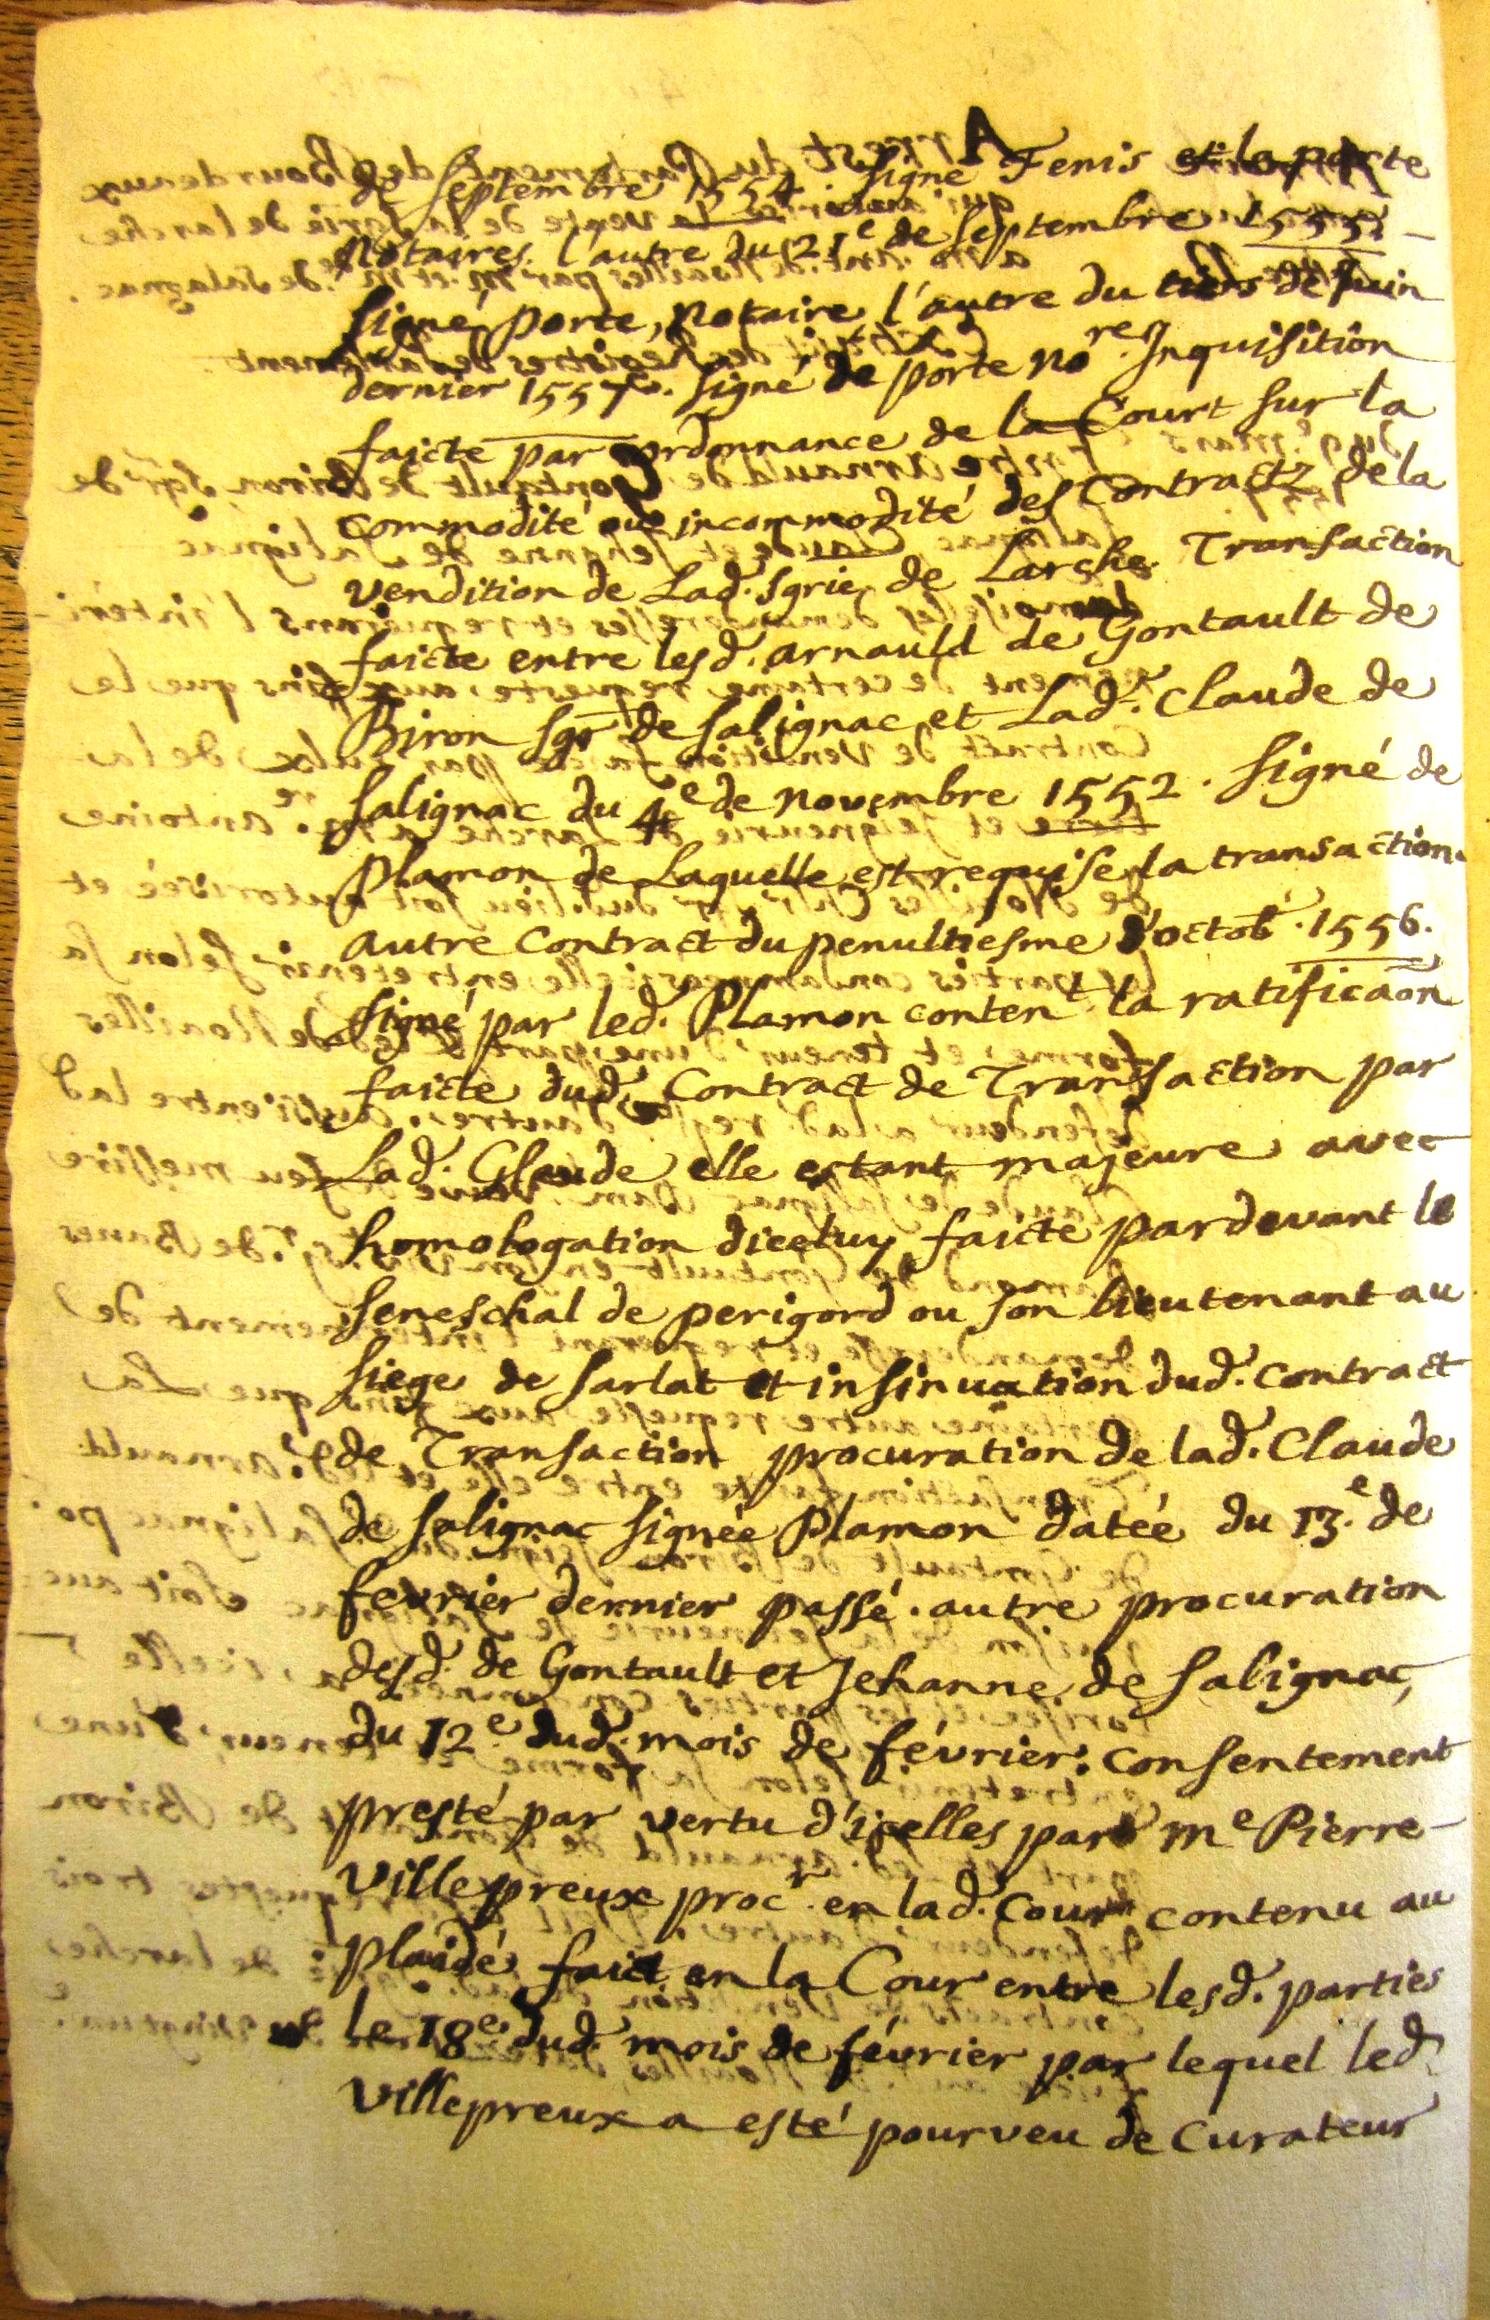 de septembre 1554. signé Fenis et la porte
Notaires. l'autre du 21e de septembre 1555.
signé, porte, Notaire, l'autre du tiers de juin
dernier 1557. signé de porte nores. Inquisition
faicte par ordonnance de la Court sur la
commodité ou incommodité des Contractz de la
vendition de Lad. sgrie, de Larche. Transaction
faicte entre lesd. arnauld de Gontault de
Biron sgr de salignac et Lad. Claude de
salignac du 4e de novembre 1552. signé de
plamon de Laquelle est requise la transaction.
autre contract du penultiesme d'octob. 1556.
signé par led. Plamon content la ratificaõn
faicte dud. Contract de Transaction par
Lad. Glaude elle estant majeure avec
homologation diceluy faicte pardevant le
seneschal de perigord ou son lieutenant au
siege de sarlat et insinuation dud. contract
de Transaction procuration de lad. Claude
de salignac signée Plamon datéé du 13.e de
fevrier dernier passé. autre procuration
desd. de Gontault et Jehanne de salignac,
du 12e. dud. mois de février. consentement
presté par vertu d'icelles par me Pierre
Villepreux procr. en lad. Cour contenu au
plaidé faict en la Cour entre lesd. parties
le 18e. dud. mois de février par lequel led.
Villepreux a esté pourveu de curateur